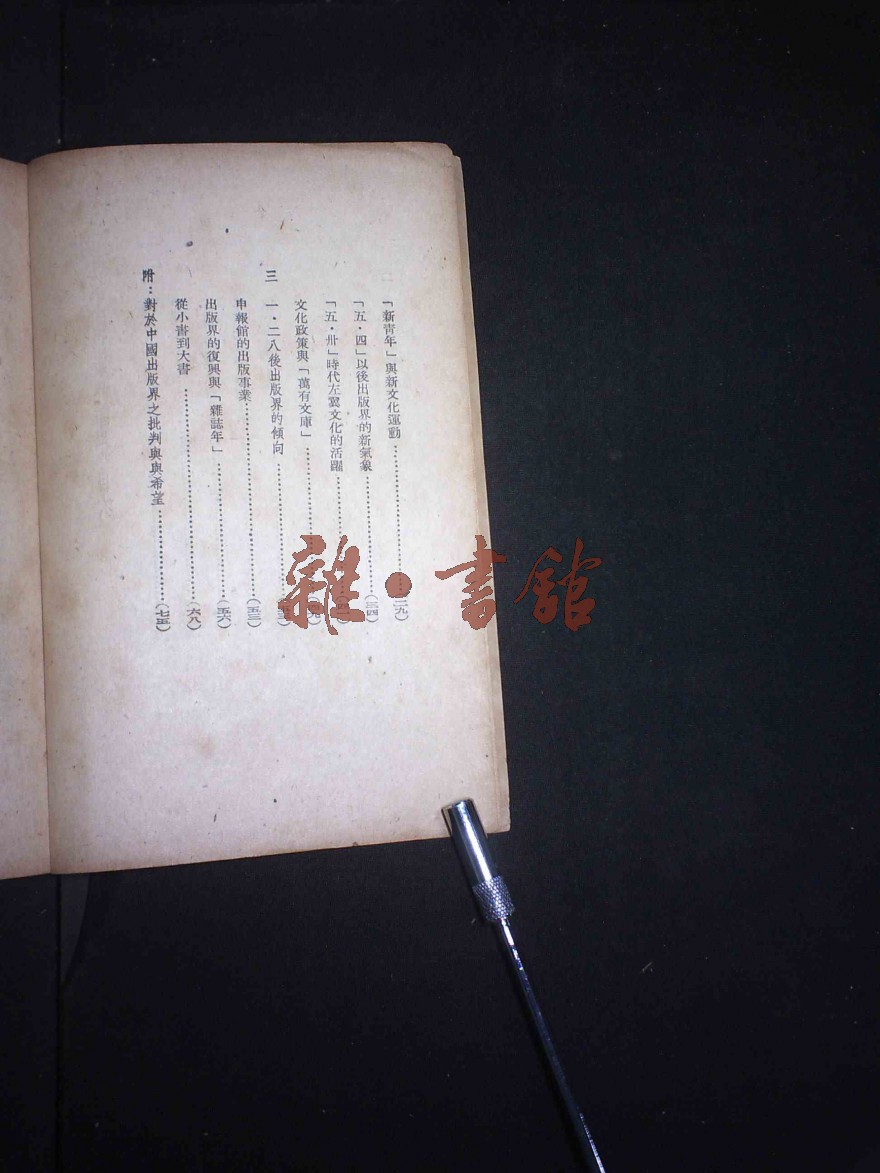 「新青年」與新文化運動……(二九)
「五・四」以後出版界的新氣象……(三四)
「五・卅」時代左翼文化的活躍……
文化政策與「萬有文庫」……
三 一・二八後出版界的傾向……
申報館的出版事業……(五三)
出版界的復興與「雜誌年」……(五六)
從小書到大書……(六八)
附：對於中國出版界之批判與與希望……(七五)
雜・書館